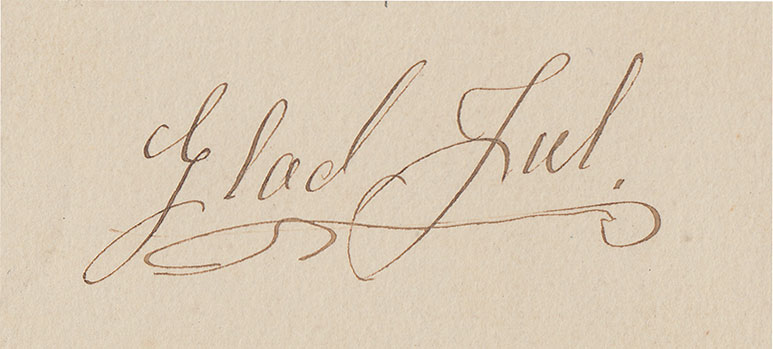 Glad Juel.